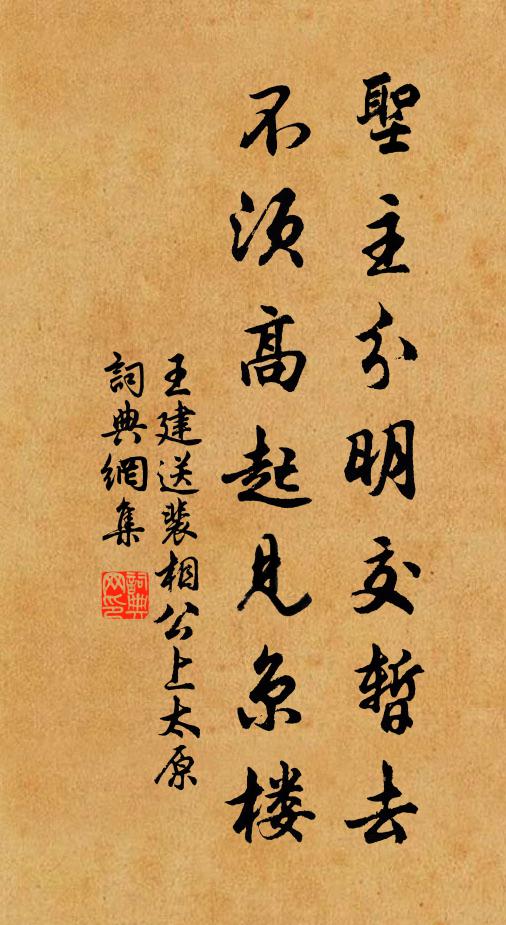 聖主分明交暫去
不須高起見京樓
王建送裴相公上太原
詞典網集
詞典网印